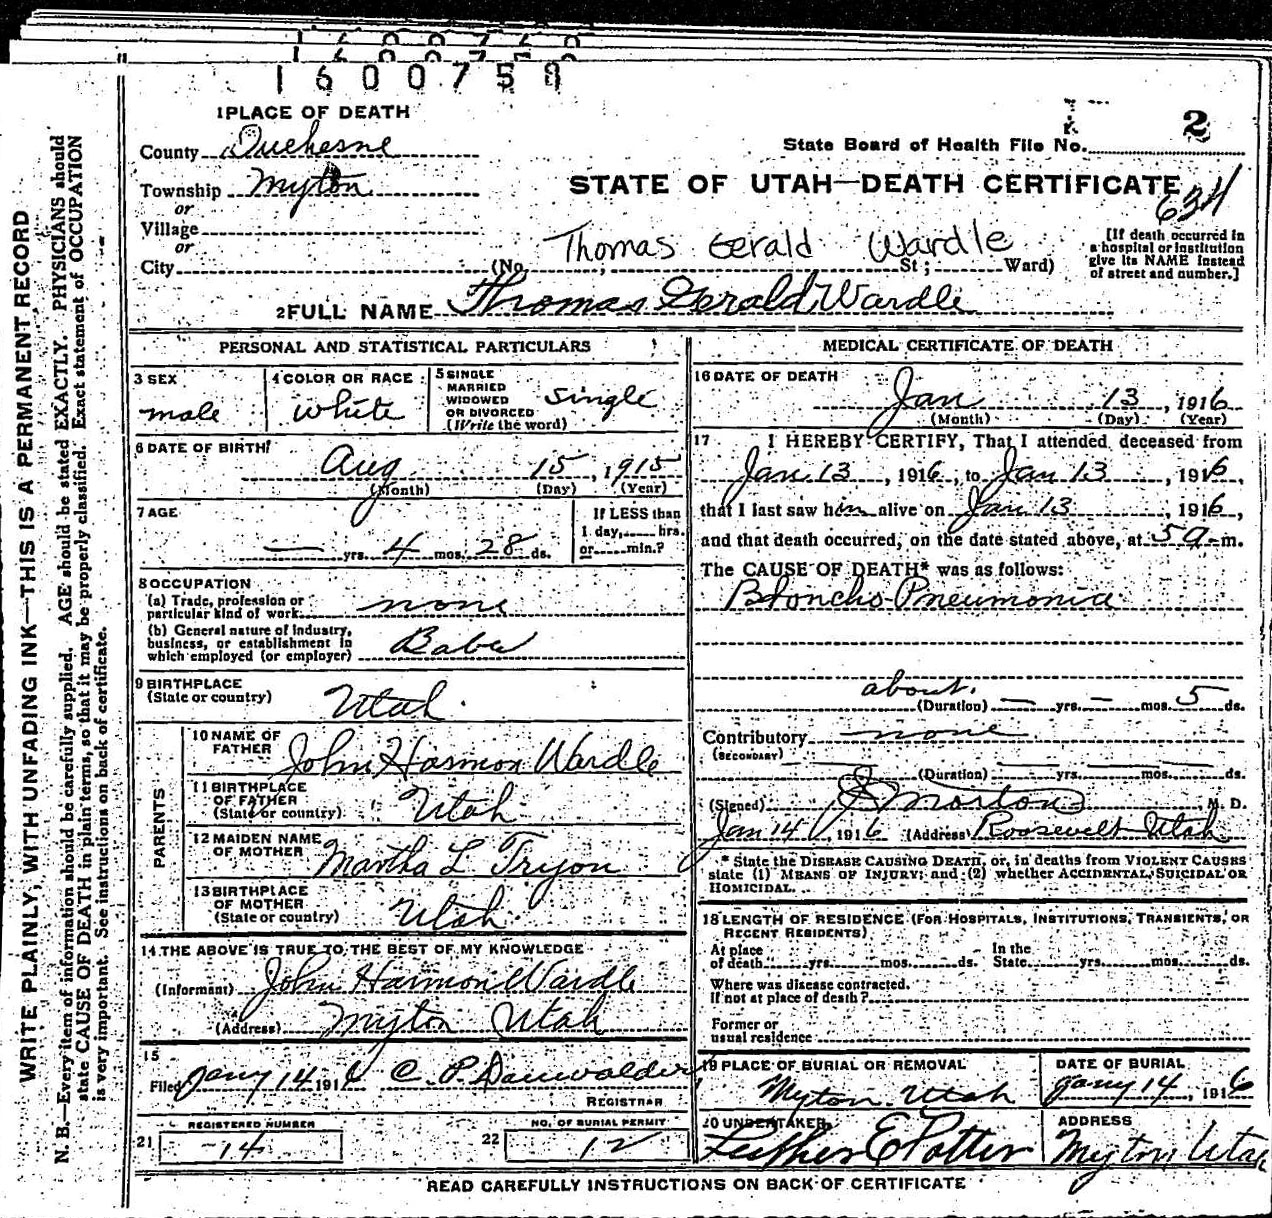 1600758
1 PLACE OF DEATH
County Duchesne
2
State Board of Health File No.
Township Myton
STATE OF UTAH—DEATH CERTIFICATE
634
or
Village
or
City
(No. ; St ; Ward)
Thomas Gerald Wardle
[If death occurred in
a hospital or institution
give its NAME instead
of street and number.]
2 FULL NAME Thomas Gerald Wardle
PERSONAL AND STATISTICAL PARTICULARS
3 SEX
male
4 COLOR OR RACE
white
5 SINGLE
MARRIED
WIDOWED
OR DIVORCED
(Write the word)
single
6 DATE OF BIRTH
Aug 15, 1915
(Month) (Day) (Year)
7 AGE
— yrs. 4 mos. 28 ds.
If LESS than
1 day, hrs.
or min.?
8 OCCUPATION
(a) Trade, profession or
particular kind of work none
(b) General nature of industry,
business, or establishment in
which employed (or employer) Babe
9 BIRTHPLACE
(State or country) Utah.
PARENTS
10 NAME OF
FATHER John Harmon Wardle
11 BIRTHPLACE
OF FATHER
(State or country) Utah
12 MAIDEN NAME
OF MOTHER Martha L Tryon
13 BIRTHPLACE
OF MOTHER
(State or country) Utah
14 THE ABOVE IS TRUE TO THE BEST OF MY KNOWLEDGE
(Informant) John Harmon Wardle
(Address) Myton Utah
15
Filed Jany 14 1916 C. P. Dauwalder
REGISTRAR
REGISTERED NUMBER
21 14
NO. OF BURIAL PERMIT
22 12
MEDICAL CERTIFICATE OF DEATH
16 DATE OF DEATH
Jan 13, 1916
(Month) (Day) (Year)
17 I HEREBY CERTIFY, That I attended deceased from
Jan 13, 1916, to Jan 13, 1916,
that I last saw him alive on Jan 13, 1916,
and that death occurred, on the date stated above, at 5 a. m.
The CAUSE OF DEATH* was as follows:
Broncho-Pneumonia
about.
(Duration) — yrs. — mos. 5 ds.
Contributory none
(SECONDARY)
(Duration) yrs. mos. ds.
(Signed) Morton M. D.
Jan 14, 1916 (Address) Roosevelt Utah
* State the DISEASE CAUSING DEATH, or, in deaths from VIOLENT CAUSES
state (1) MEANS OF INJURY; and (2) whether ACCIDENTAL, SUICIDAL OR
HOMICIDAL.
18 LENGTH OF RESIDENCE (FOR HOSPITALS, INSTITUTIONS, TRANSIENTS, OR
RECENT RESIDENTS)
At place
of death yrs. mos. ds.
In the
State yrs. mos. ds.
Where was disease contracted.
If not at place of death?
Former or
usual residence
19 PLACE OF BURIAL OR REMOVAL
Myton. Utah
DATE OF BURIAL
Jany 14, 1916
20 UNDERTAKER
Luther E Potter
ADDRESS
Myton, Utah
READ CAREFULLY INSTRUCTIONS ON BACK OF CERTIFICATE
WRITE PLAINLY, WITH UNFADING INK—THIS IS A PERMANENT RECORD
N. B.—Every item of information should be carefully supplied. AGE should be stated EXACTLY. PHYSICIANS should
state CAUSE OF DEATH in plain terms, so that it may be properly classified. Exact statement of OCCUPATION
is very important. See instructions on back of certificate.